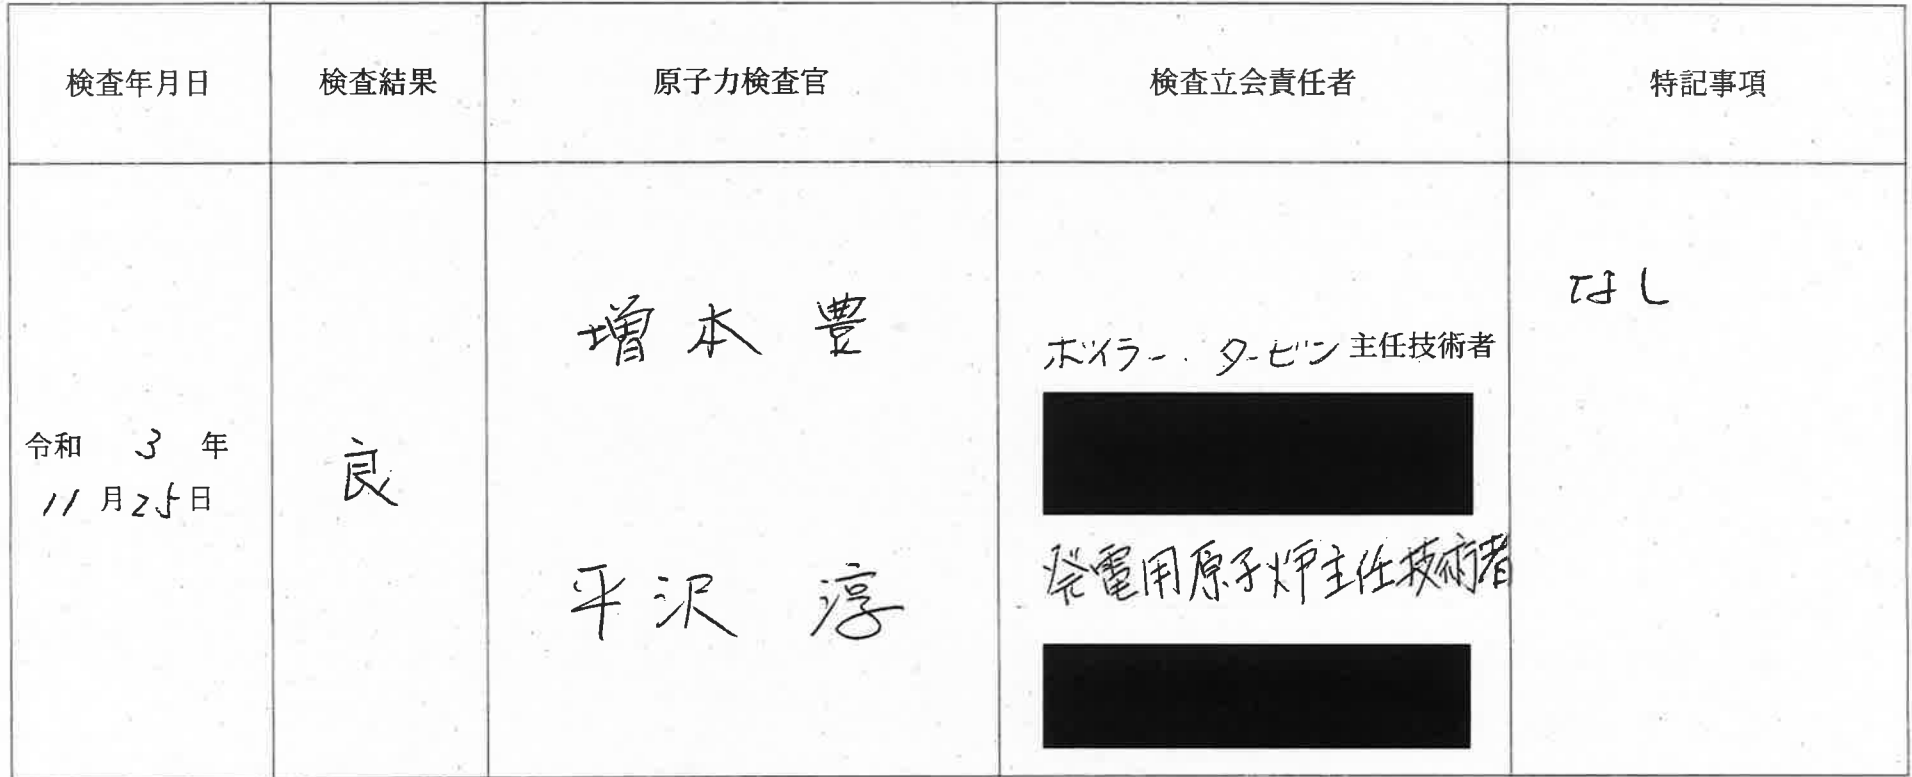 検査年月日
検査結果
原子力検査官
検査立会責任者
特記事項
令和 3 年
11月25日
良
増本 豊
平沢 淳
ボイラー・タービン主任技術者
発電用原子炉主任技術者
なし